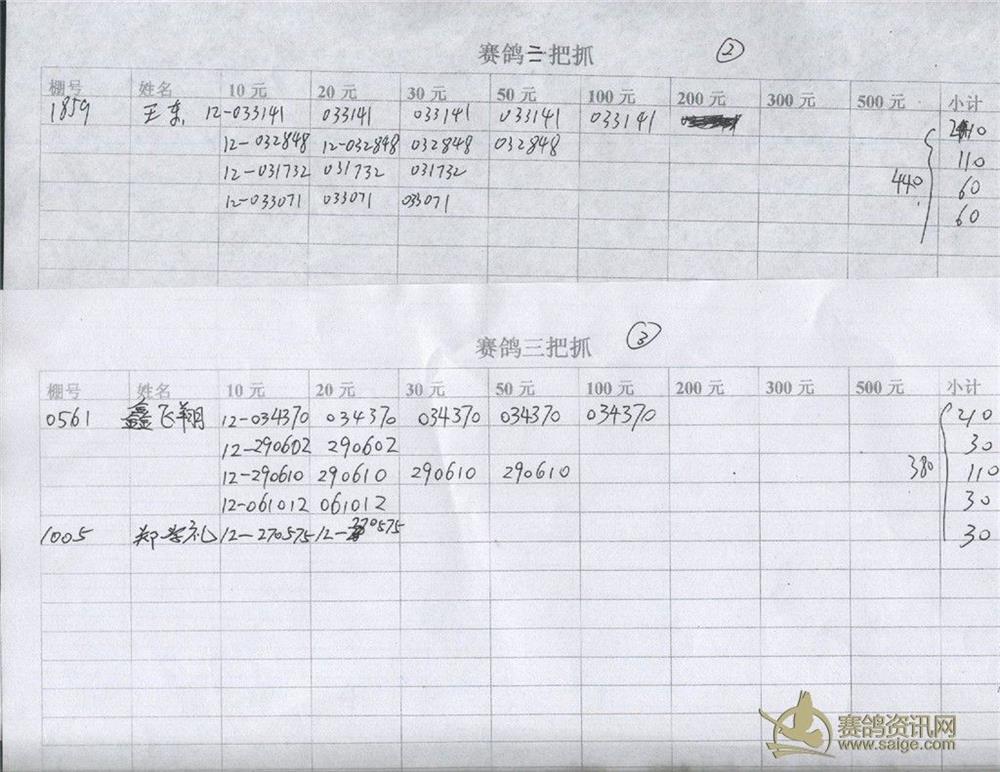 赛鸽二把抓 ②
棚号 姓名 10 元 20 元 30 元 50 元 100 元 200 元 300 元 500 元 小计
1859 王东 12-033141 033141 033141 033141 033141 210
12-032848 12-032848 032848 032848 110
12-031732 031732 031732 440 60
12-033071 033071 033071 60
赛鸽三把抓 ③
棚号 姓名 10 元 20 元 30 元 50 元 100 元 200 元 300 元 500 元 小计
0561 鑫飞翔 12-034370 034370 034370 034370 034370 210
12-290602 290602 30
12-290610 290610 290610 290610 380 110
12-061012 061012 30
1005 郑学礼 12-270575 12-270575 30
赛鸽资讯网
www.saige.com